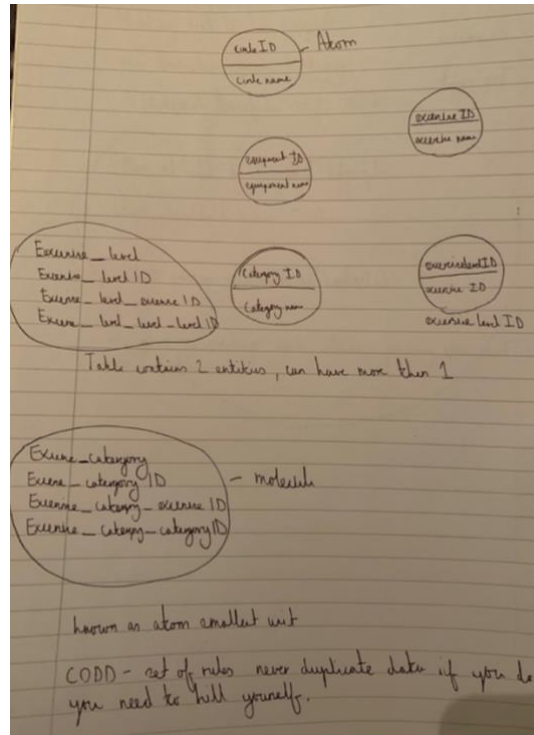 circle ID - Atom
circle name
exercise ID
exercise name
equipment ID
equipment name
Exercise_level
Exercise_level ID
Exercise_level_exercise ID
Exercise_level_level_level ID
Category ID
Category name
exerciselevelID
exercise ID
exercise level ID
Table contains 2 entities, can have more then 1
Exercise_category
Exercise_category ID
Exercise_category_exercise ID
Exercise_category_categoryID
- molecule
known as atom smallest unit
CODD - set of rules never duplicate data if you do
you need to kill yourself.